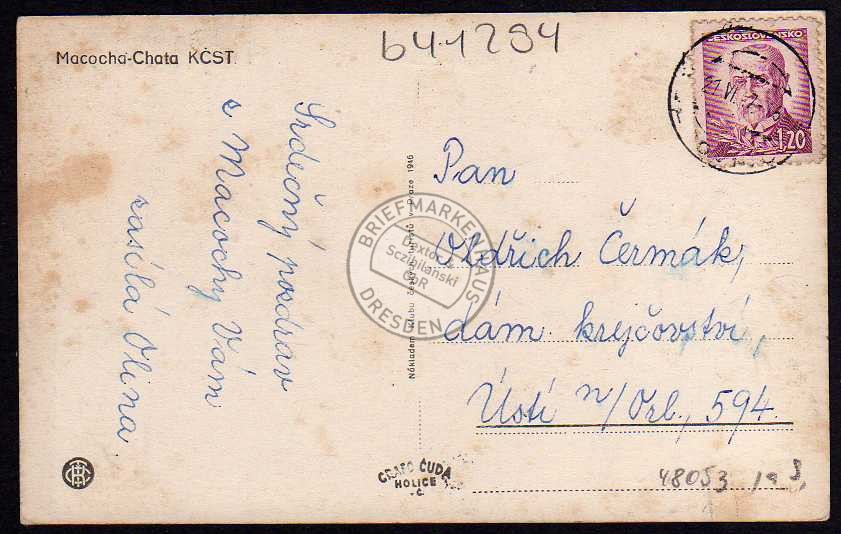 641294
Macocha-Chata KČST.
ČESKOSLOVENSKO
1.20
21.VI.
Srdečný pozdrav
z Macochy Vám
zasílá Olina.
Nákladem Klubu v Praze 1946
Pan
Oldřich Čermák,
dám. krejčovství,
Ústí n/Orl., 594.
BRIEFMARKENHAUS
Dextor &
Sczibilanski
GbR
DRESDEN
GRAFO ČUDA
HOLICE
48053